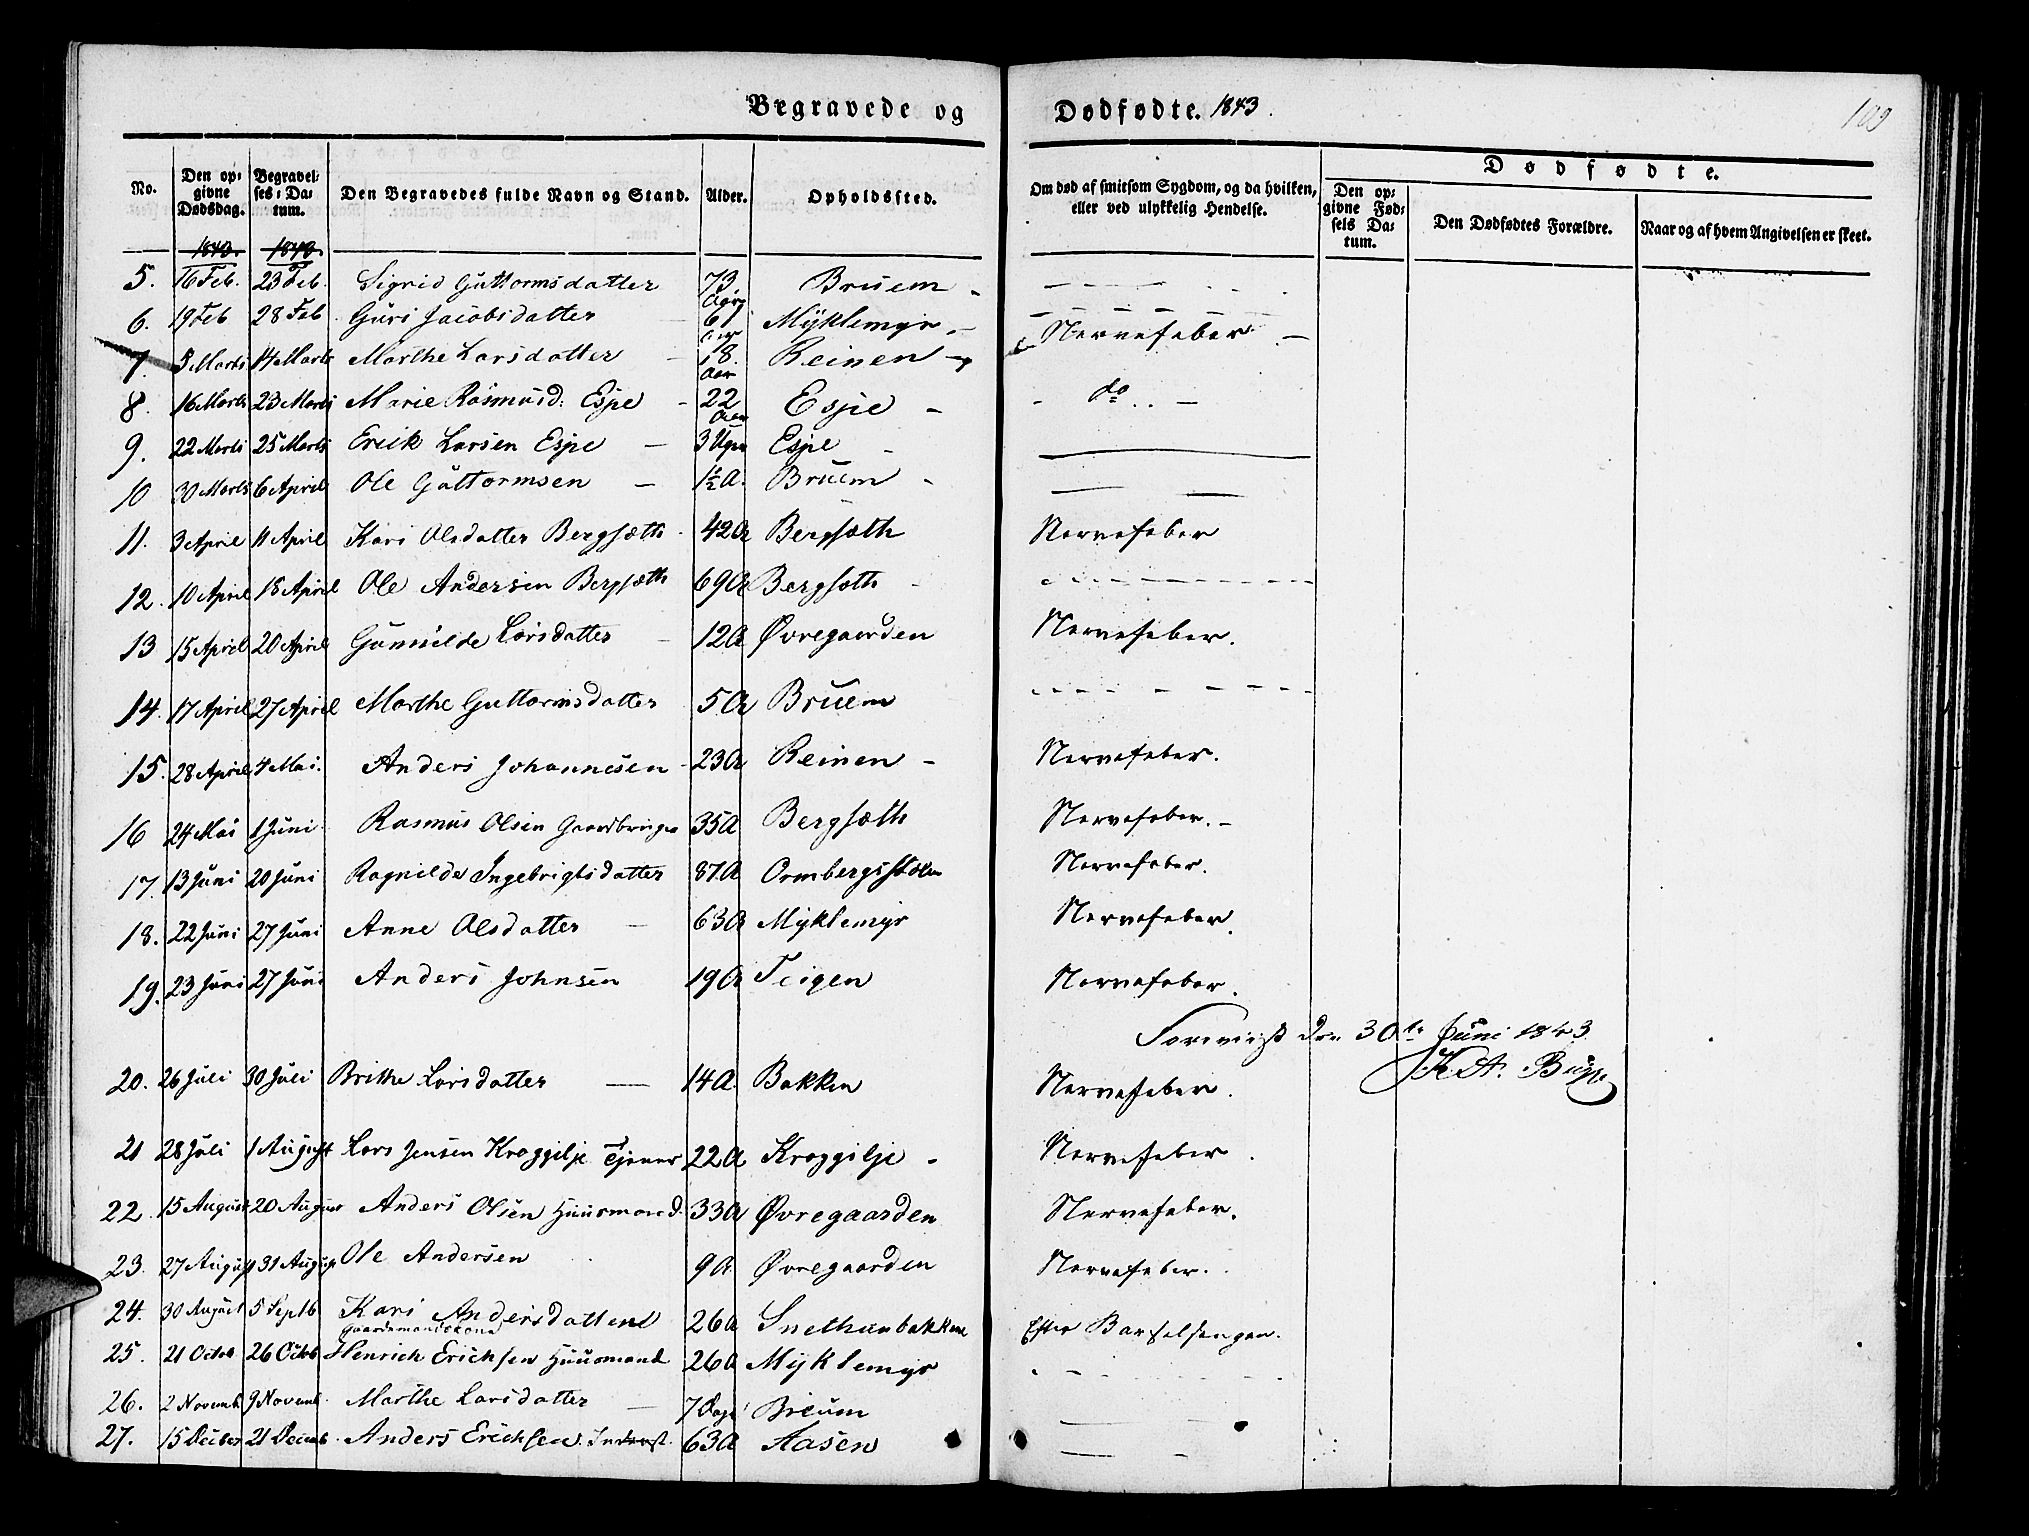 Begravede og Dødfødte. 1843.
109
No. | Den opgivne Dødsdag. | Begravelses-Datum. | Den Begravedes fulde Navn og Stand. | Alder. | Opholdssted. | Om død af smitsom Sygdom, og da hvilken, eller ved ulykkelig Hendelse. | Dødfødte. | Den opgivne Fødsels Datum. | Den Dødfødtes Forældre. | Naar og af hvem Angivelsen er skeet.
5. 16 Feb. 23 Feb. Sigrid Guttormsdatter 73 Bruem
6. 19 Feb 28 Feb Guri Jacobsdatter 6 Myklemyr Nervefeber
7. 5 Marts 14 Marts Marthe Larsdatter 18 Aar Reinen
8. 16 Marts 23 Marts Marie Rasmusd: Espe 22 Aar Espe do
9. 22 Marts 25 Marts Erick Larsen Espe 3 Uger Espe
10 30 Marts 6 April Ole Guttormsen 1½ A. Bruem
11. 3 April 11 April Kari Olsdatter Bergsæth 42 A Bergsæth Nervefeber
12. 10 April 18 April Ole Andersen Bergsæth 69 A Bergsæth
13 15 April 20 April Gunnilde Larsdatter 12 A Øvregaarden Nervefeber.
14. 17 April 27 April Marthe Guttormsdatter 5 A Bruem
15. 28 April 4 Mai. Anders Johannesen 23 A Reinen Nervefeber.
16 24 Mai 1 Juni Rasmus Olsen Gaardbruger 35 A Bergsæth Nervefeber.
17. 13 Juni 20 Juni Ragnilde Ingebrigtsdatter 87 A Ormbergsstølen Nervefeber.
18. 22 Juni 27 Juni Anne Olsdatter 63 A Myklemyr Nervefeber.
19. 23 Juni 27 Juni Anders Johnsen 19 A Teigen Nervefeber.
Foreviist den 30te Juni 1843
K. A. Bugge
20. 26 Juli 30 Juli Brithe Larsdatter 14 A. Bakken Nervefeber.
21 28 Juli 1 August Lars Jensen Kroggilje Tjener 22 A Kroggilje Nervefeber.
22. 15 August 20 August Anders Olsen Huusmand. 33 A Øvregaarden Nervefeber.
23. 27 August 31 August Ole Andersen 9 A. Øvregaarden Nervefeber.
24. 30 August 5 Septb Kari Andersdatter Gaardmandskone 26 A Snethunbakken Efter Barselsengen.
25. 21 Octob 26 Octob Henrich Erichsen Huusmand 26 A Myklemyr
26. 2 Novemb 9 Novemb. Marthe Larsdatter 7 Dage Breum
27. 15 December 21 Decemb. Anders Erichsen Inderst. 63 A Aasen